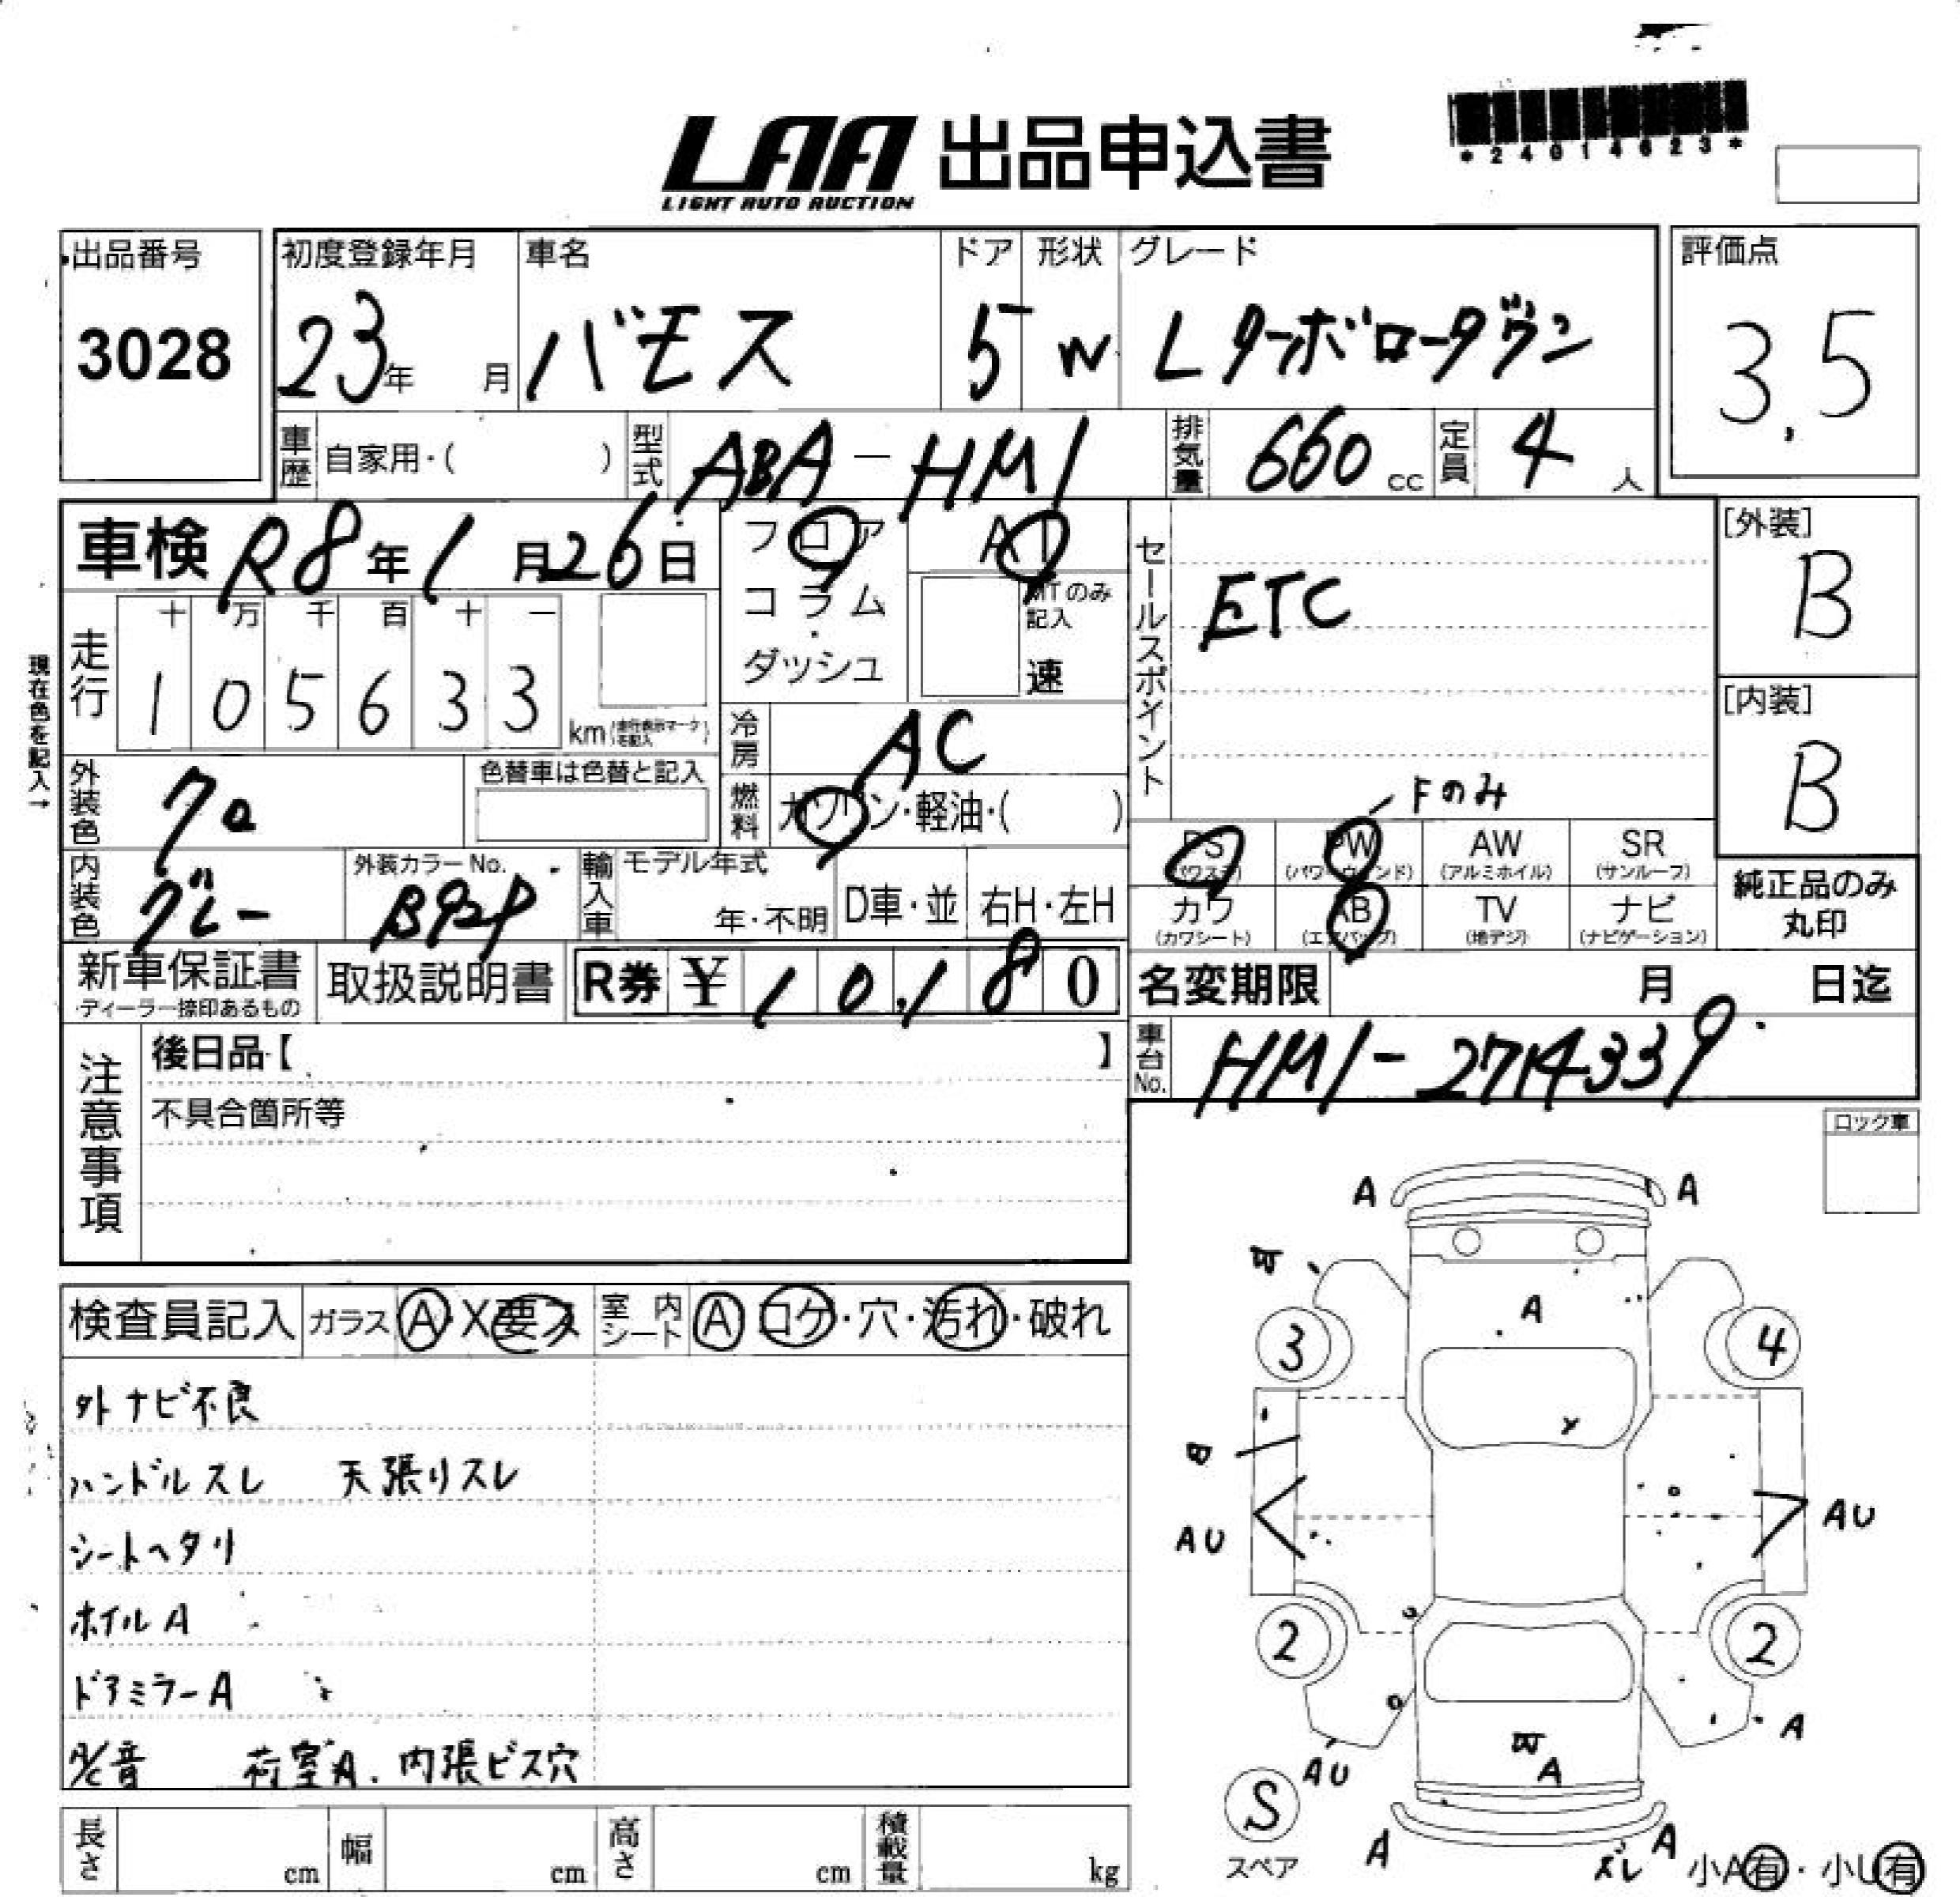 LAA 出品申込書
LIGHT AUTO AUCTION
*24014623*
出品番号
3028
初度登録年月
23年 月
車名
バモス
ドア
5
形状
W
グレード
Lターボローダウン
評価点
3.5
車歴 自家用・( )
型式 ABA-HM1
排気量 660 cc
定員 4 人
車検 R8年1月26日
フロア
コラム
・
ダッシュ
AT
MTのみ記入
速
セールスポイント
ETC
[外装]
B
[内装]
B
現在色を記入→
走行
十 万 千 百 十 一
1 0 5 6 3 3
km(走行表示マークを記入)
冷房 AC
燃料 ガソリン・軽油・( )
外装色 クロ
色替車は色替と記入
Fのみ
PS (パワステ)
PW (パワーウィンド)
AW (アルミホイル)
SR (サンルーフ)
カワ (カワシート)
AB (エアバック)
TV (地デジ)
ナビ (ナビゲーション)
純正品のみ
丸印
内装色 グレー
外装カラーNo.
B92P
輸入車
モデル年式
年・不明
D車・並
右H・左H
新車保証書
・ディーラー捺印あるもの
取扱説明書
R券 ¥ 10,180
名変期限 月 日迄
車台No. HM1-2714339
注意事項
後日品【 】
不具合箇所等
ロック車
検査員記入
ガラス A・X要ス
室内シート A コゲ・穴・汚れ・破れ
外ナビ不良
ハンドルスレ 天張りスレ
シートヘタリ
ホイルA
ドアミラーA
A/C音 荷室A. 内張ビス穴
長さ cm
幅 cm
高さ cm
積載量 kg
A A
A
3 4
AU AU
2 2
A
AU
A
S
スペア
A A
ズレ
小A有・小U有